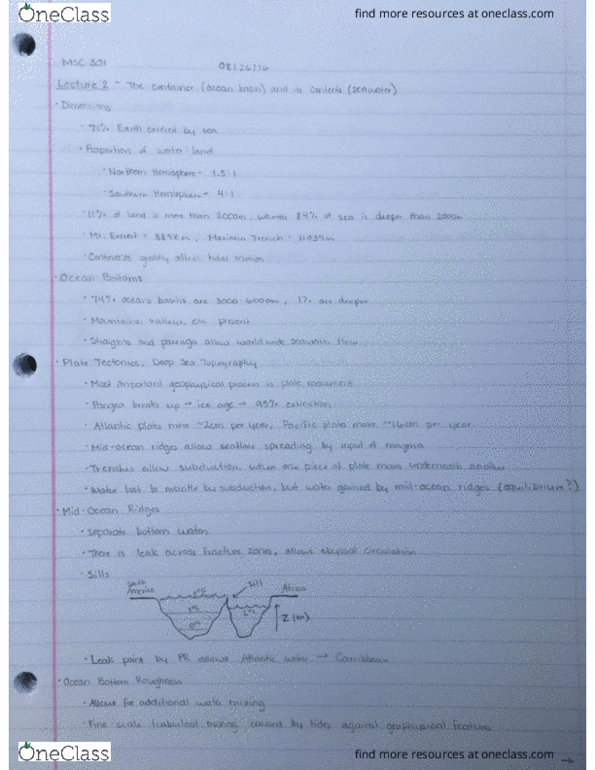 OneClass
find more resources at oneclass.com
MSC 301
08/26/16
Lecture 2 - The container (ocean basin) and its contents (seawater)
• Dimensions
• 71% Earth covered by sea
• Proportion of water:land
• Northern Hemisphere - 1.5:1
• Southern Hemisphere - 4:1
• 11% of land is more than 2000m, whereas 84% of sea is deeper than 2000m
• Mt. Everest = 8848m, Mariana Trench = 11034m
• Continents greatly affect tidal motion
• Ocean Bottoms
• 74% oceans basins are 3000-6000m, 1% are deeper
• Mountains, valleys, etc. present
• Straights and passage allow worldwide seawater flow
• Plate Tectonics, Deep Sea Topography
• Most important geophysical process is plate movement
• Pangea breaks up → ice age → 95% extinction
• Atlantic plates move ~2cm per year, Pacific plates move ~16cm per year
• Mid-ocean ridges allow seafloor spreading by input of magma
• Trenches allow subduction, when one piece of plate moves underneath another
• Water lost to mantle by subduction, but water gained by mid-ocean ridges (equilibrium?)
• Mid-Ocean Ridges
• Separate bottom water
• There is leak across fracture zones, allows abyssal circulation
• Sills
South America
Sill
Africa
1°C
0°C
2°C
Z(m)
• Leak point by PR allows Atlantic water → Carribbean
• Ocean Bottom Roughness
• Allows for additional water mixing
• Fine-scale turbulent mixing caused by tides against geophysical features
OneClass
find more resources at oneclass.com